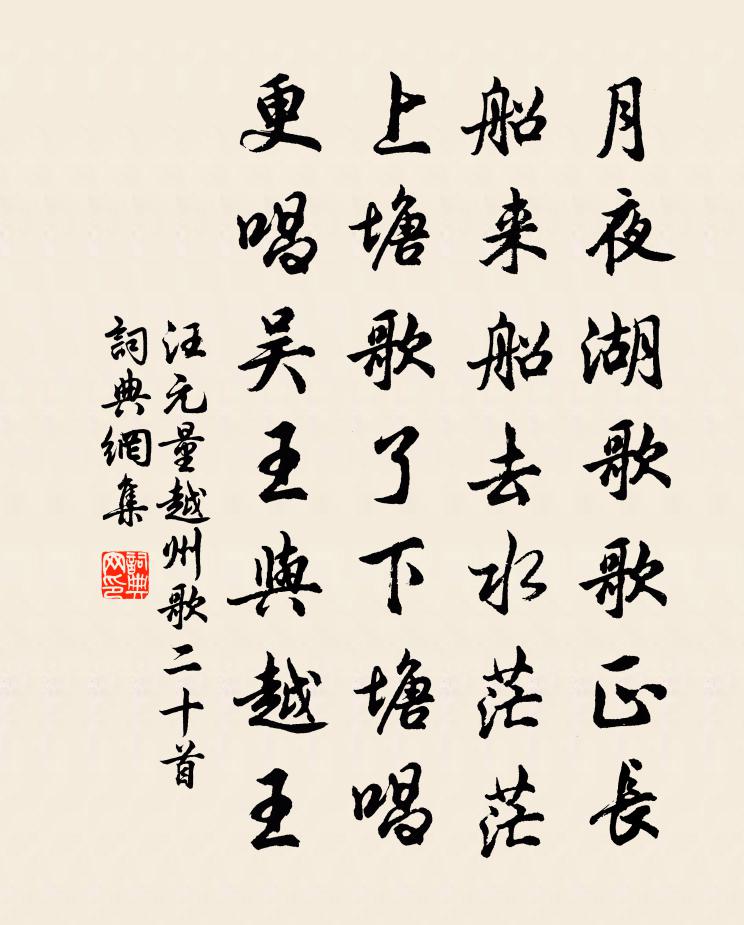 月夜湖歌歌正長
船来船去水茫茫
上塘歌了下塘唱
更唱吴王與越王
汪元量越州歌二十首
詞典網集
詞典網印